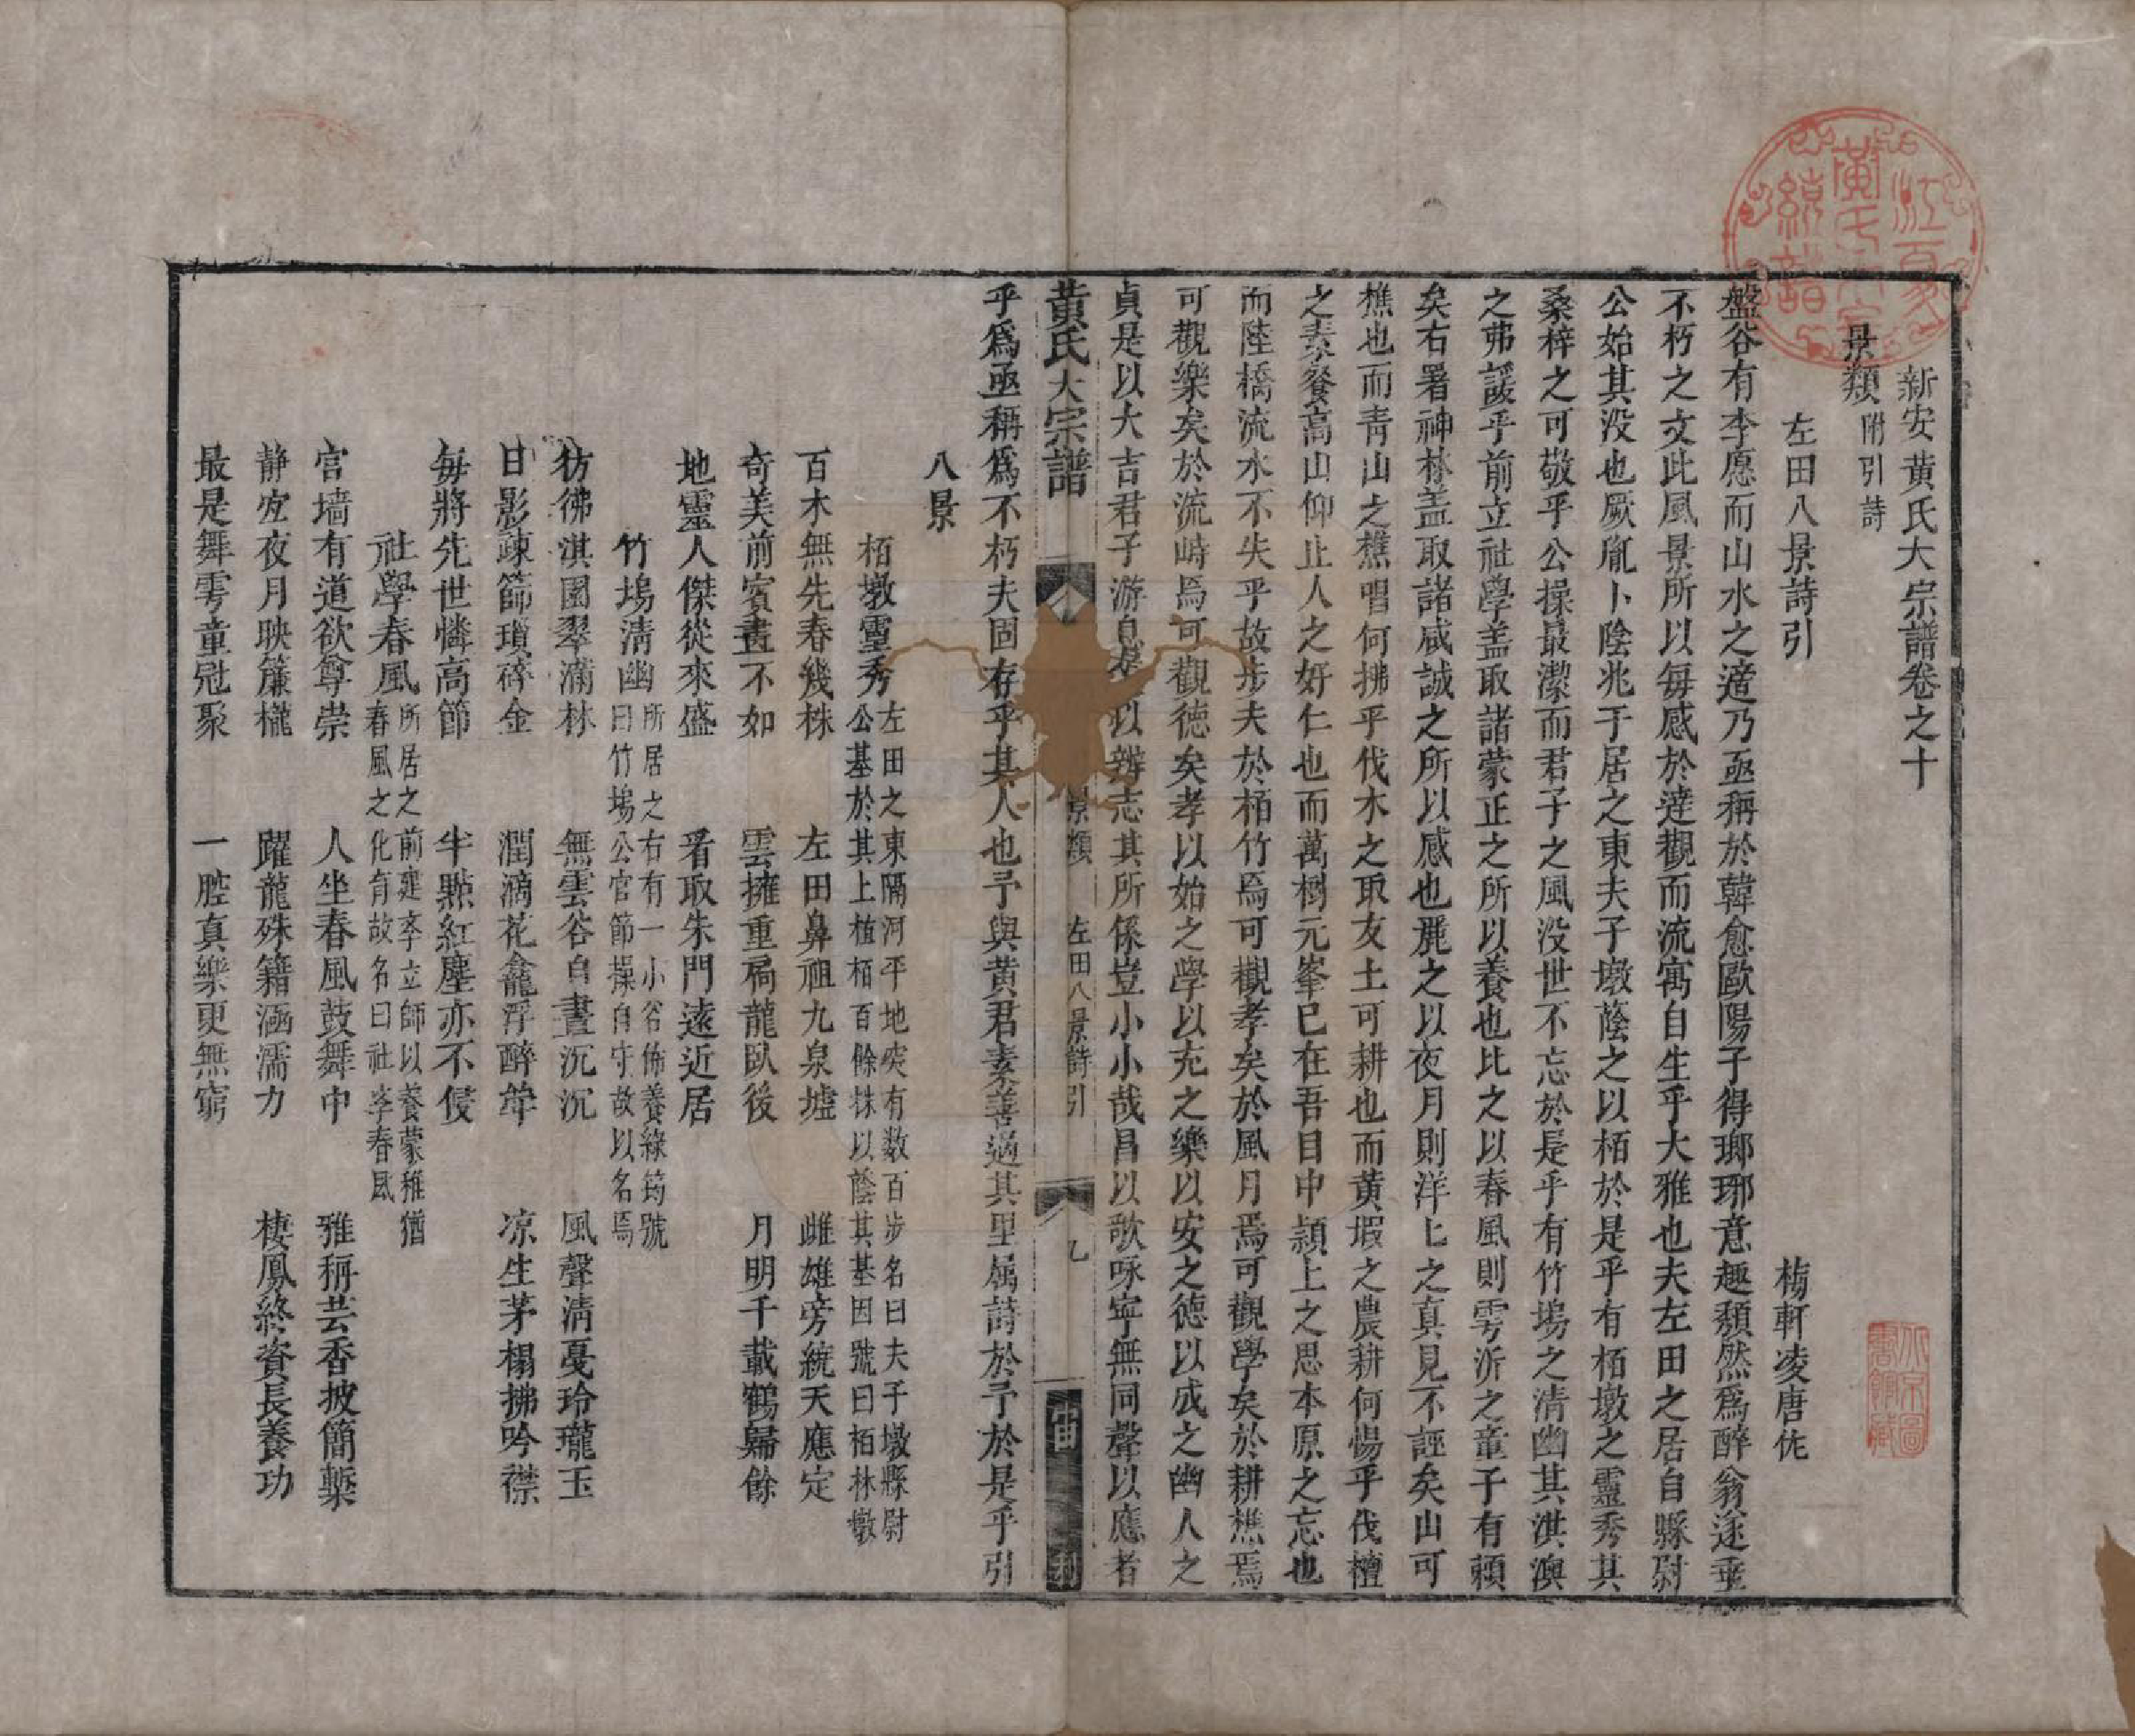 新安黃氏大宗譜卷之十
景類 附引詩
左田八景詩引
梅軒凌唐佐
盤谷有李愿而山水之適乃亟稱於韓愈歐陽子得瑯琊意趣頹然爲醉翁遂垂
不朽之文此風景所以每感於達觀而流寓自生乎大雅也夫左田之居自縣尉
公始其没也厥胤卜陰兆于居之東夫子墩蔭之以栢於是乎有栢墩之靈秀其
桑梓之可敬乎公操最潔而君子之風没世不忘於是乎有竹塢之清幽其淇澳
之弗諼乎前立社學盖取諸蒙正之所以養也比之以春風則雩沂之童子有賴
矣右署神林盖取諸咸誠之所以感也麗之以夜月則洋匕之真見不誣矣山可
樵也而青山之樵唱何拂乎伐木之取友土可耕也而黄塅之農耕何惕乎伐檀
之素餐高山仰止人之好仁也而萬樹元峯已在吾目中潁上之思本原之忘也
而陸橋流水不失乎故步夫於栢竹焉可觀孝矣於風月焉可觀學矣於耕樵焉
可觀樂矣於流峙焉可觀德矣孝以始之學以充之樂以安之德以成之幽人之
貞是以大吉君子游息以辨志其所係豈小小哉昌以歌咏寧無同聲以應者
黃氏大宗譜 景類 左田八景詩引 乙
乎爲亟稱爲不朽夫固存乎其人也予與黄君素善過其里属詩於予於是乎引
八景
栢墩靈秀 左田之東隔河平地突有数百步名曰夫子墩縣尉
公基於其上植栢百餘株以蔭其基因號曰栢林墩
百木無先春幾株 左田鼻祖九泉墟 雌雄旁統天應定
奇美前賓畫不如 雲擁重扃龍臥後 月明千載鶴歸餘
地靈人傑從來盛 看取朱門遠近居
竹塢清幽 所居之右有一小谷佈養綠筠號
曰竹塢公官節操自守故以名焉
彷彿淇園翠滿林 無雲谷自晝沉沉 風聲清戞玲瓏玉
日影疎篩瑣碎金 潤滴花龕浮醉斝 凉生茅榻拂吟襟
每將先世憐高節 半點紅塵亦不侵
社學春風 所居之前建李立師以養蒙稚猶
春風之化育故名曰社李春風
宫墻有道欲尊崇 人坐春風鼓舞中 雅稱芸香披簡槧
静宜夜月映簾櫳 躍龍殊籍涵濡力 棲鳳終資長養功
最是舞雩童冠聚 一腔真樂更無窮